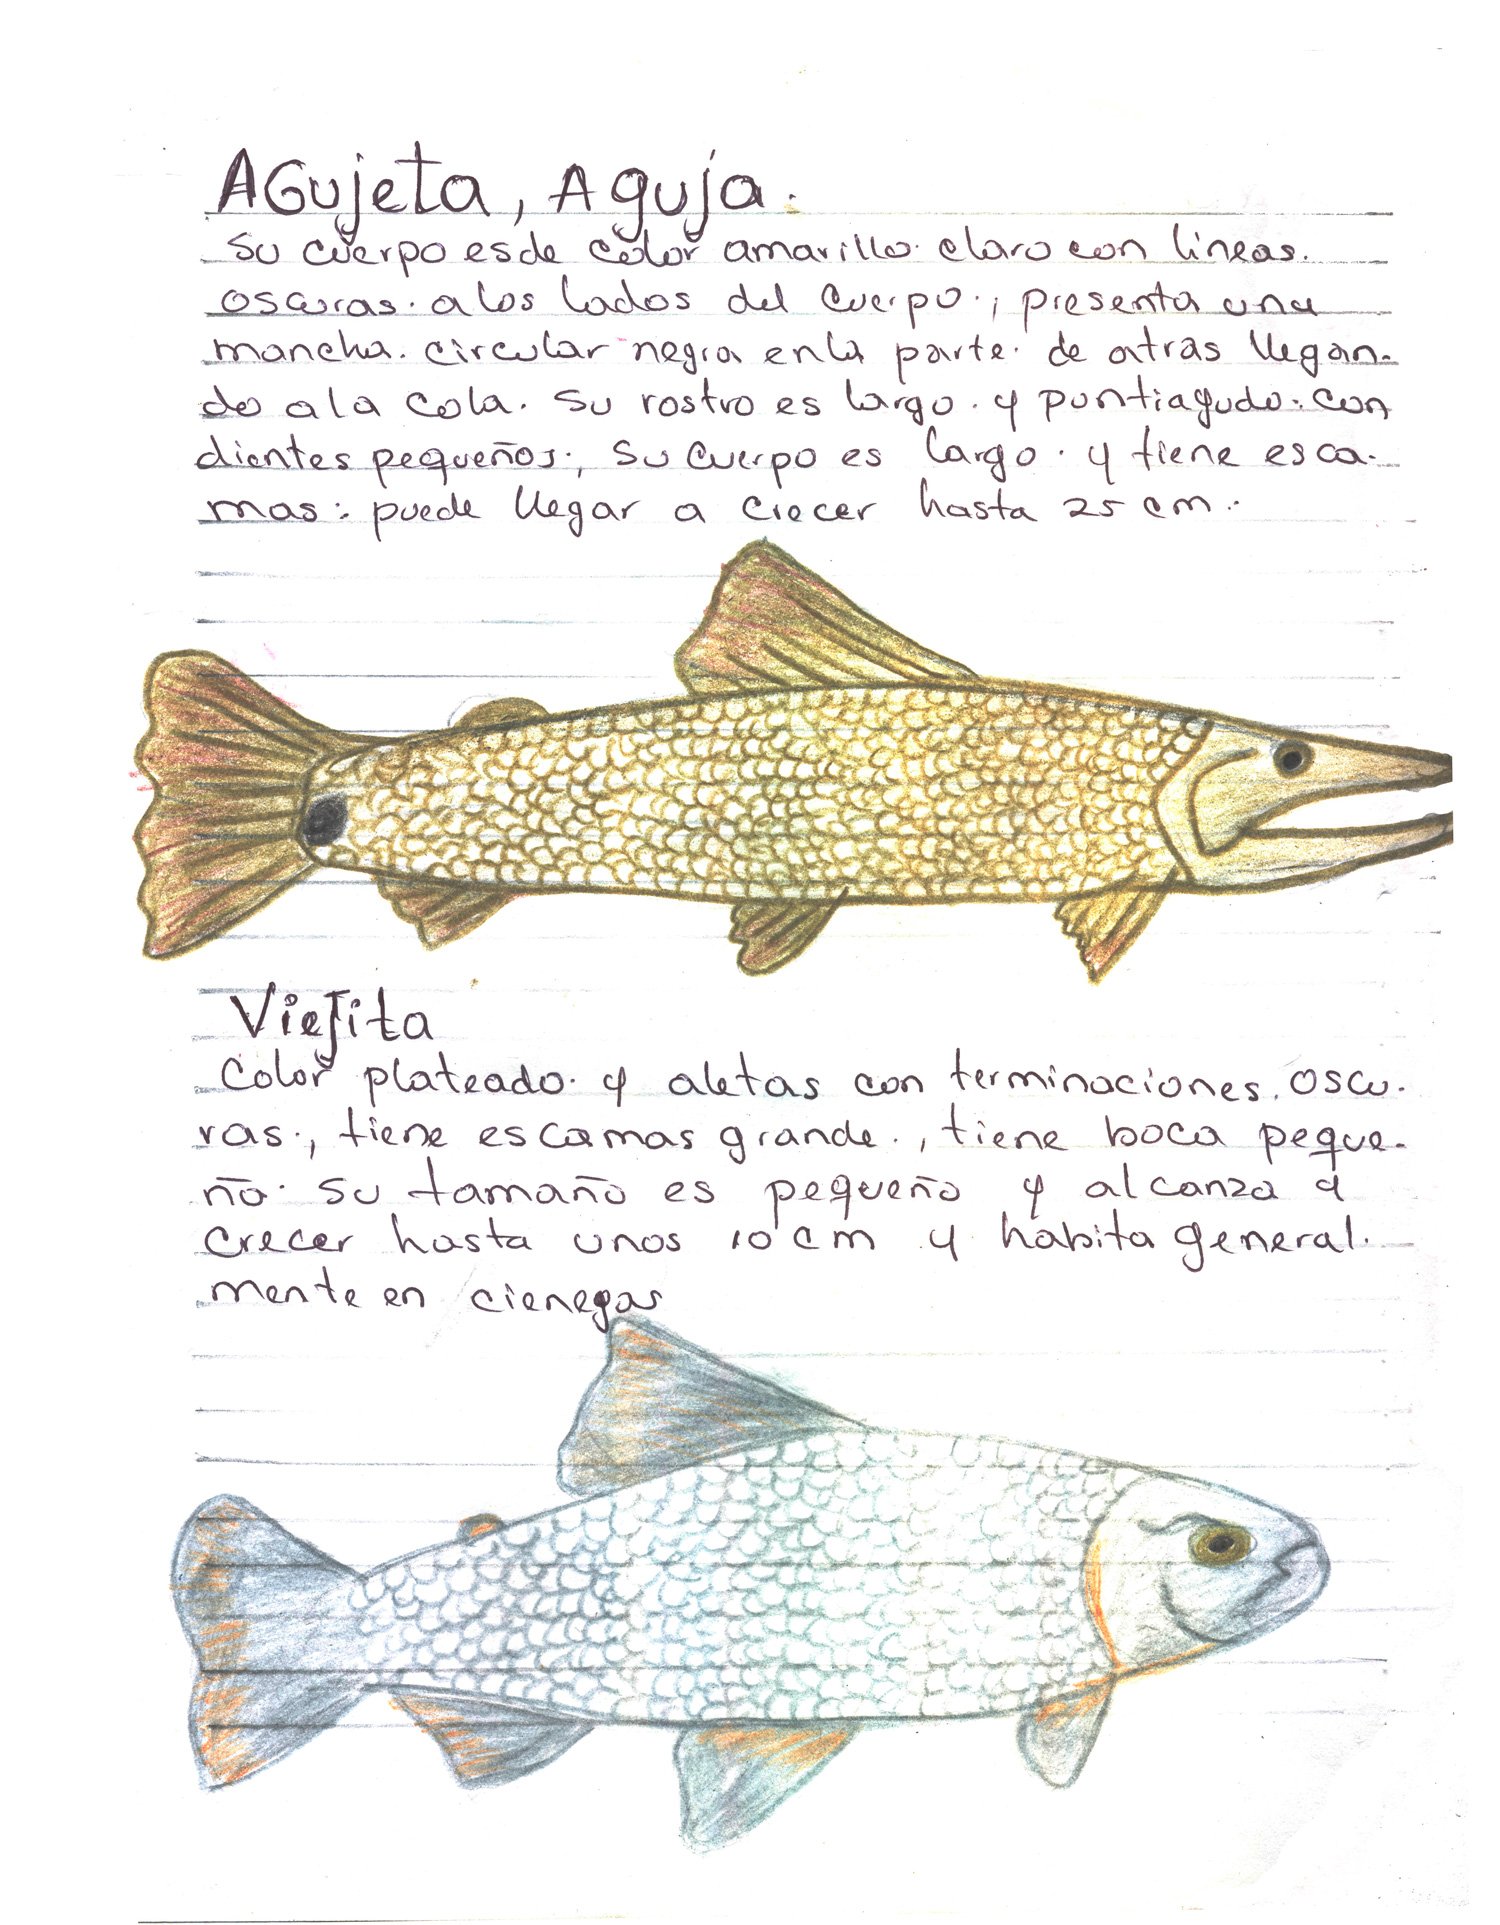 AGujeta, Aguja.
Su cuerpo es de color amarillo. claro con lineas.
oscuras. a los lados del cuerpo., presenta una
mancha. circular negra en la parte. de atras llegan-
do a la cola. Su rostro es largo. y puntiagudo. con
dientes pequeños., su cuerpo es largo. y tiene esca-
mas. puede llegar a crecer hasta 25 cm.
Viejita
Color plateado. y aletas con terminaciones. oscu-
ras., tiene escamas grande., tiene boca peque-
ña. su tamaño es pequeño y alcanza a
crecer hasta unos 10 cm y habita general-
mente en cienegas